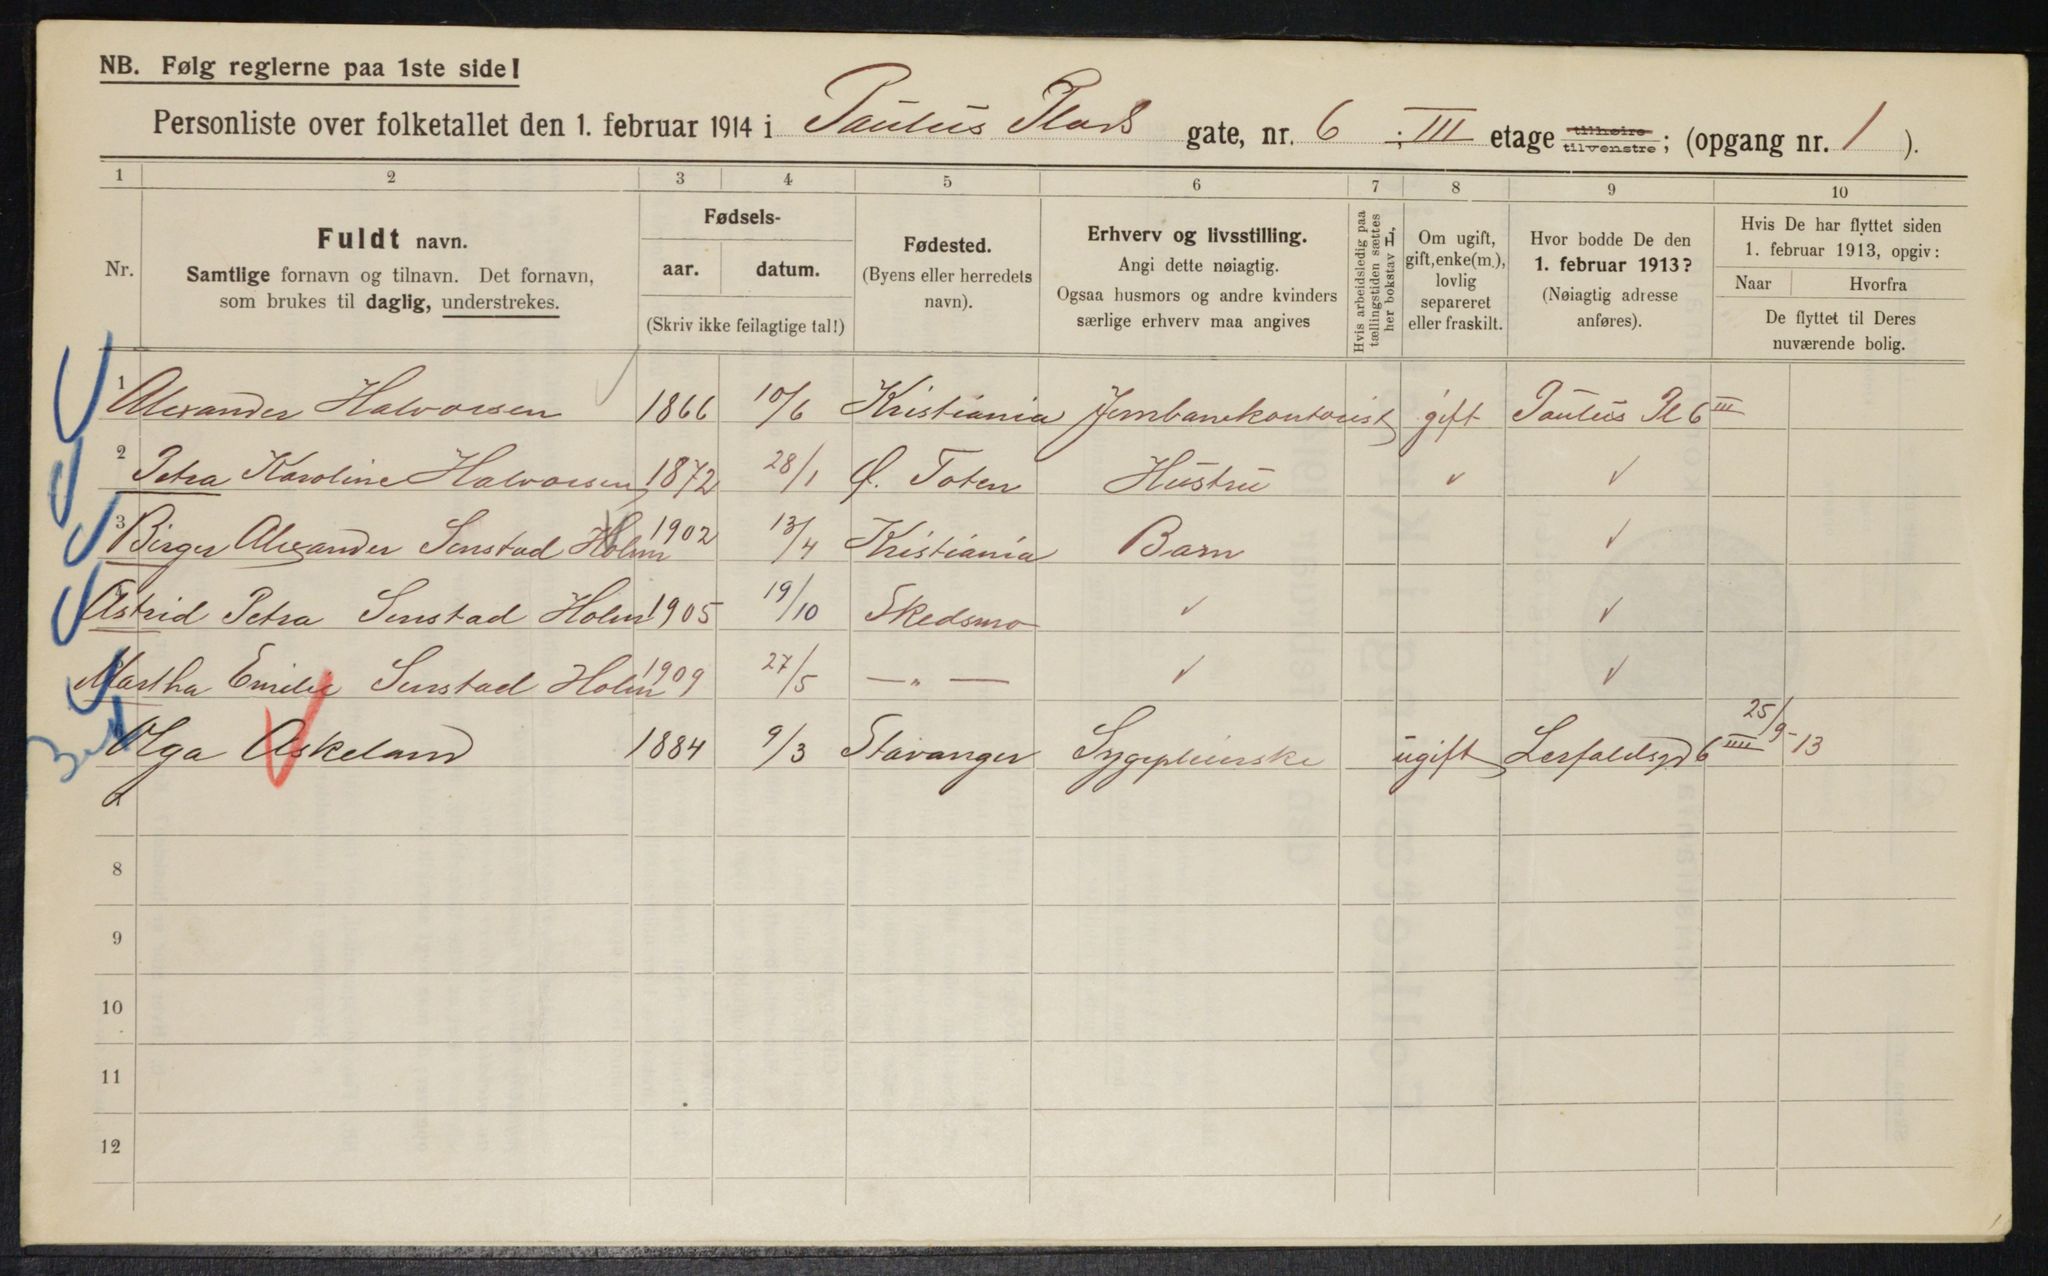 NB. Følg reglerne paa 1ste side!
Personliste over folketallet den 1. februar 1914 i Paulus Plads gate, nr. 6 ; III etage tilhøire tilvenstre; (opgang nr. 1 ).
1 2 3 4 5 6 7 8 9 10
Nr.
Fuldt navn.
Samtlige fornavn og tilnavn. Det fornavn,
som brukes til daglig, understrekes.
Fødsels-
aar. datum.
(Skriv ikke feilagtige tal!)
Fødested.
(Byens eller herredets
navn).
Erhverv og livsstilling.
Angi dette nøiagtig.
Ogsaa husmors og andre kvinders
særlige erhverv maa angives
Hvis arbeidsledig paa
tællingstiden sættes
her bokstav L,
Om ugift,
gift, enke(m.),
lovlig
separeret
eller fraskilt.
Hvor bodde De den
1. februar 1913?
(Nøiagtig adresse
anføres).
Hvis De har flyttet siden
1. februar 1913, opgiv:
Naar Hvorfra
De flyttet til Deres
nuværende bolig.
1 Alexander Halvorsen 1866 10/6 Kristiania Jernbanekontorist gift Paulus Pl 6 III
2 Petra Karoline Halvorsen 1872 28/1 Ø. Toten Hustru ✓ ✓
3 Birger Alexander Senstad Holm 1902 13/4 Kristiania Barn ✓
Astrid Petra Senstad Holm 1905 19/10 Skedsmo ✓ ✓
Martha Emilie Senstad Holm 1909 27/5 — „ — ✓ ✓
Olga Askeland 1884 9/3 Stavanger Sygepleierske ugift Lerfaldsgd 6 IIII 25/9-13
8
9
10
11
12